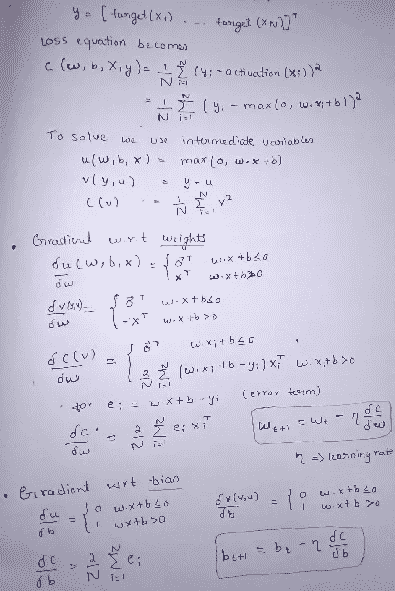 y = [ target(x₁) . -- . target (x_N)]ᵀ
Loss equation becomes
C (w, b, X, y) = 1/N Σ_{i=1}^{N} (yᵢ - activation(xᵢ))²
= 1/N Σ_{i=1}^{N} ( yᵢ - max(0, w.xᵢ+b))²
To solve we use intermediate variables
u(w, b, x) = max(0, w.x+b)
v(y, u) = y - u
C(v) = 1/N Σ_{i=1}^{N} v²
• Gradient w.r.t weights
δu(w, b, x)/δw = { 0⃗ᵀ w.x+b≤0
xᵀ w.x+b>0
δv(y,u)/δw = { 0⃗ᵀ w.x+b≤0
-xᵀ w.x+b>0
δC(v)/δw = { 0⃗ᵀ w.xᵢ+b≤0
2/N Σ_{i=1}^{N} (w.xᵢ+b-yᵢ) xᵢᵀ w.xᵢ+b>0
for eᵢ = w x+b-yᵢ (error term)
δC/δw = 2/N Σ_{i=1}^{N} eᵢ xᵢᵀ
w_{t+1} = w_t - η δC/δw
η => learning rate
• Gradient wrt bias
δu/δb = { 0 w.x+b≤0
1 w.x+b>0
δv(y,u)/δb = { 0 w.x+b≤0
1 w.x+b>0
δC/δb = 2/N Σ_{i=1}^{N} eᵢ
b_{t+1} = b_t - η δC/δb